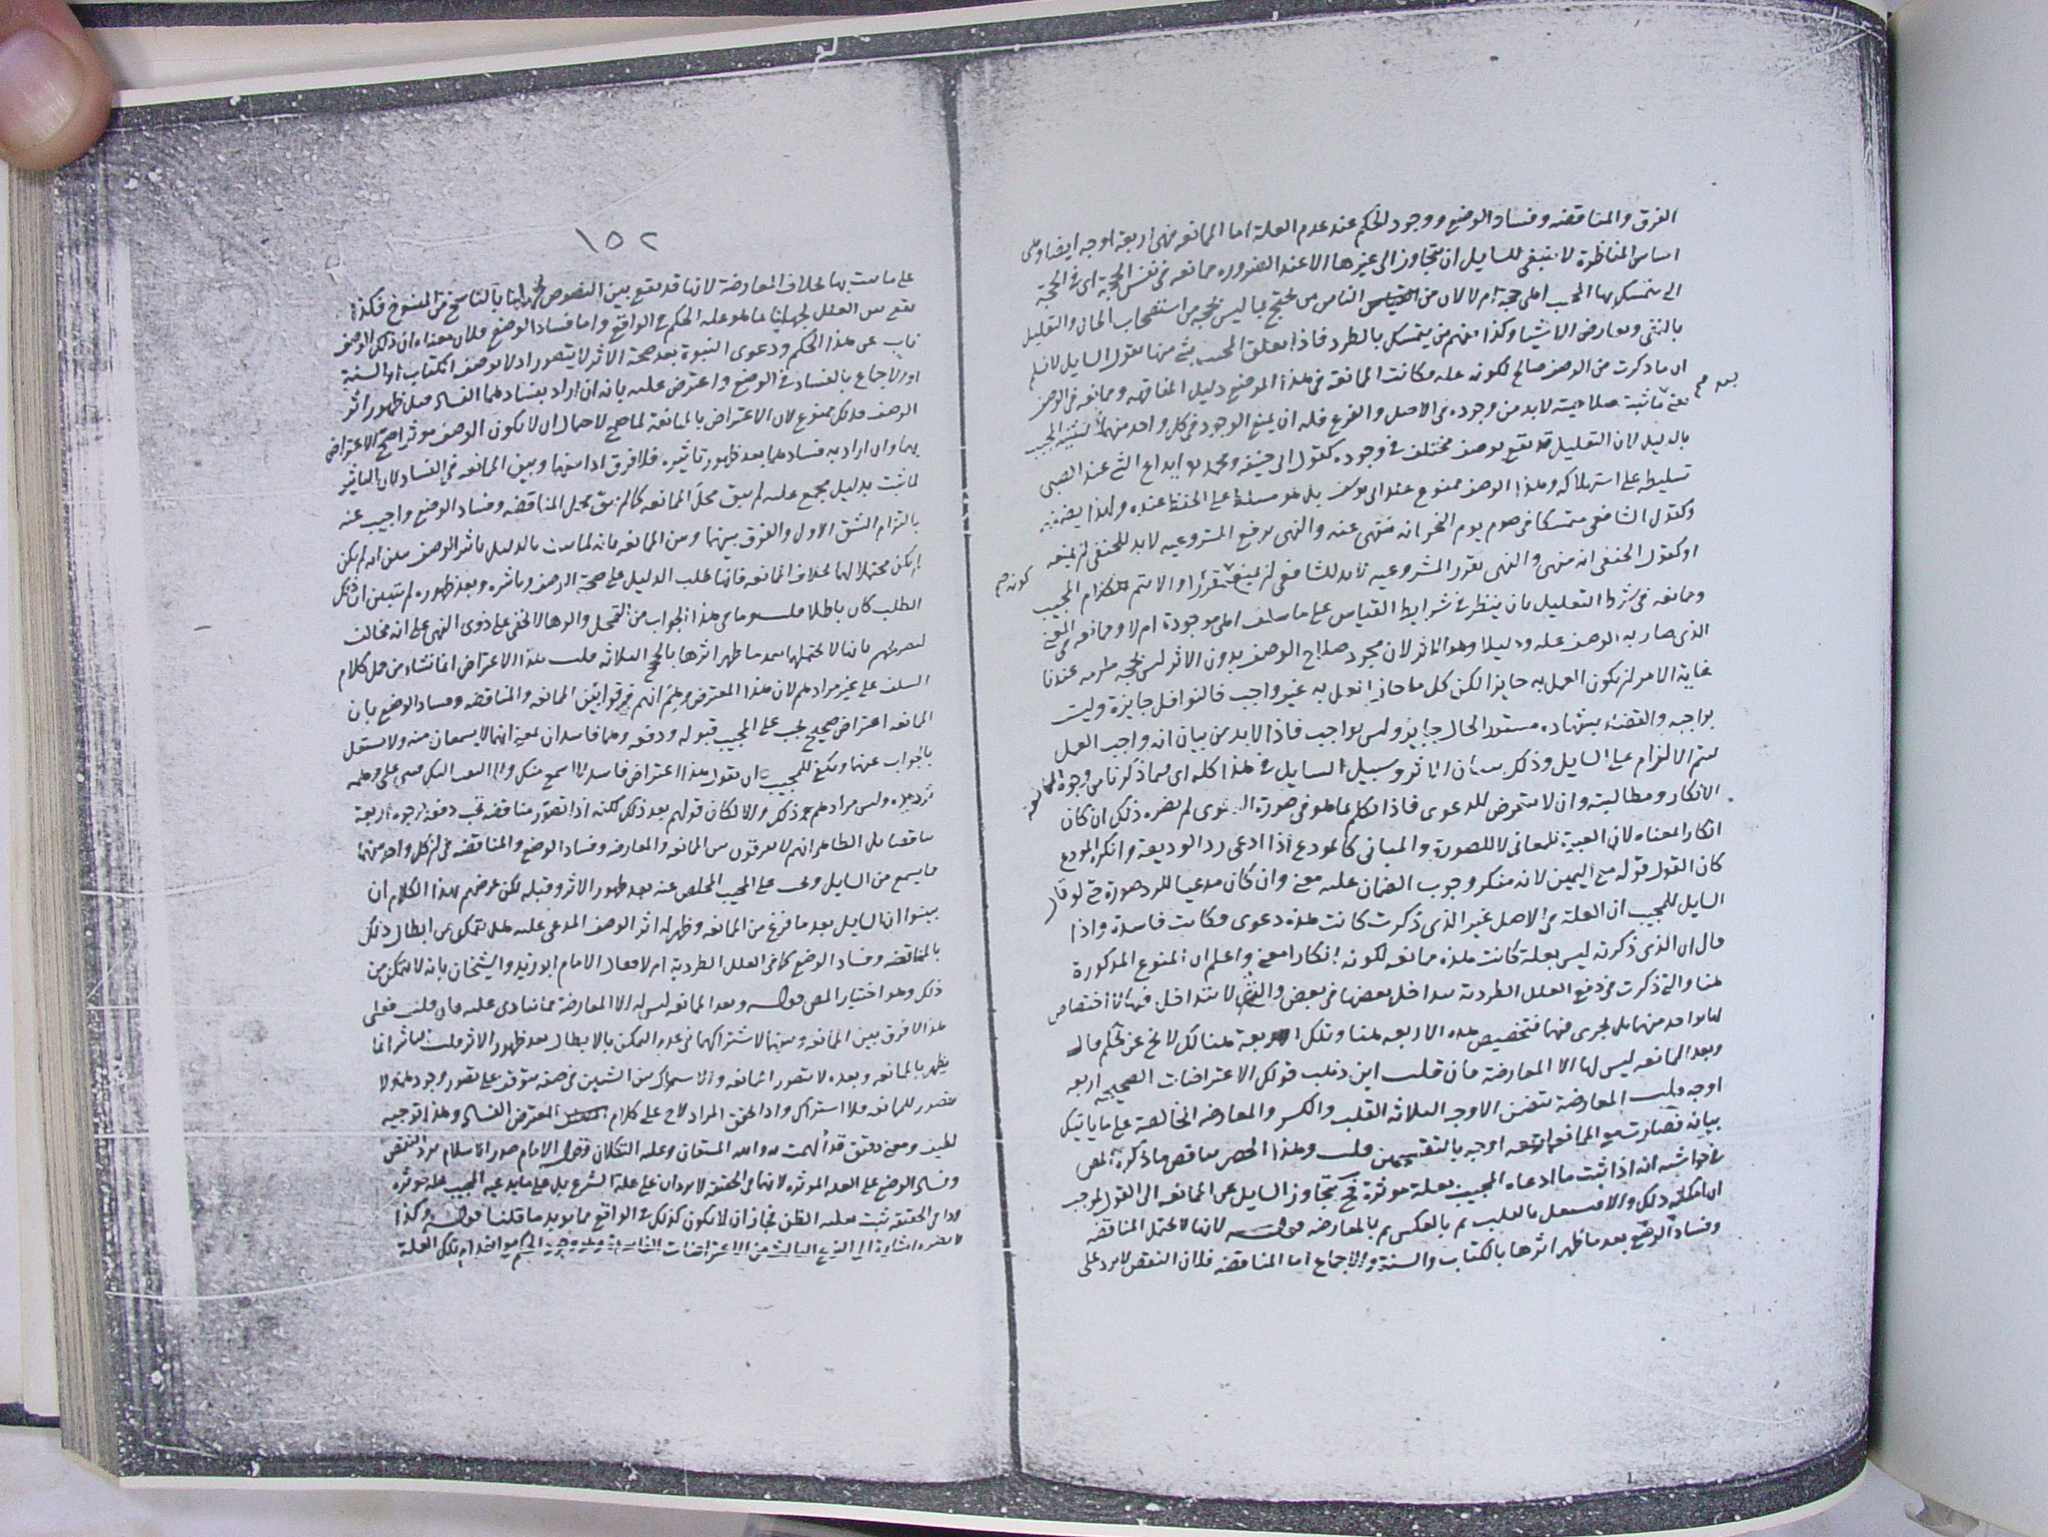 الفرق والمناقضه وفساد الوضع ووجود الحكم عند عدم العلة اما الممانعه فهى اربعة اوجه ايضا وهى
اساس المناظرة لا ينبغى للسايل ان يتجاوز الى غيرها الا عند الضروره ممانعه فى نفس الحجة اى فى الحجة
التى يتمسك بها المجيب اهى حجة ام لا لان من الناس من يحتج بما ليس بحجه من استصحاب الحال والتعليل
بالنفى وتعارض الاشياء وكذا منهم من يتمسك بالطرد فاذا تعلق المجيب بشى منها يقول السايل لا نسلم
ان ما ذكرت من الوصف صالح لكونه علة فكانت الممانعة فى هذا الموضع دليل المفاقهه وممانعه فى الوصف
يعنى صلاحيته لابد من وجوده فى الاصل والفرع فله ان يمنع الوجود فى كل واحد منهما ليثبته المجيب
بعد صح
بالدليل لان التعليل قد يقع بوصف مختلف فى وجوده كقول ابى حنيفه ومحمد ايداع الشى عند الصبى
تسليط على استهلاكه وهذا الوصف ممنوع عند ابى يوسف بل هو مسلط على الحفظ عنده ولهذا يضمنه
وكقول الشافعى متمسكا فى صوم يوم النحر انه منهى عنه والنهى يرفع المشروعيه لابد للحنفى ان يمنعه
او كقول الحنفى انه منهى والنهى يقرر المشروعيه لابد للشافعى ان يمنع مقررا والا لا يتم الزام المجيب
كونه صح
وممانعه فى شرط التعليل بان ينظر فى شرايط القياس على ما سلف اهى موجودة ام لا وممانعه فى المعنى
الذى صار به الوصف علة ودليلا وهو التاثير لان مجرد صلاح الوصف بدون الاثر ليس بحجه ملزمه عندنا
غاية الامر ان يكون العمل به جايزا لكن كل ما جاز العمل به غير واجب فالنوافل جايزة وليست
بواجبه والقضاء بشهادة مستور الحال جايز وليس بواجب فاذا لابد من بيان انه واجب العمل
ليتم الالزام على السايل وذلك ببيان التاثير وسبيل السايل فى هذا كله اى فيما ذكرنا من وجوه الممانعه
الانكار ومطالبته وان لا يتعرض للدعوى فاذا تكلم بما هو فى صورة الدعوى لم يضره ذلك ان كان
انكارا معناه لان العبرة للمعانى لا للصورة والمبانى كالمودع اذا ادعى رد الوديعة وانكره المودع
كان القول قوله مع اليمين لانه منكر وجوب الضمان عليه معنى وان كان مدعيا للرد صورة حتى لو قال
السايل للمجيب ان العلة فى الاصل غير الذى ذكرت كانت هذه دعوى فكانت فاسدة واذا
قال ان الذى ذكرته ليس بعلة كانت هذه ممانعه لكونه انكارا معنى واعلم ان المنوع المذكورة
هنا والتى ذكرت فى دفع العلل الطردية يتداخل بعضها فى بعض والتى لا تتداخل فيها لا اختصاص
لها بواحد منها بل يجرى فيهما فتخصيص هذه الاربعه هنا وتلك الاربعة هنالك لا يخ عن تحكم قال
وبعد الممانعه ليس لها الا المعارضة فان قلت اين ذهب قولك الاعتراضات الصحيحه اربعه
اوجه قلت المعارضة تتضمن الاوجه الثلاثه القلب والكسر والمعارضه الخالصة على ما ياتيك
بيانه فصارت مع الممانعه اربعه اوجه بالتقسيمين قلت وهذا الحصر يناقض ما ذكره المص
فى حواشيه انه اذا ثبت ما ادعاه المجيب بعلة موثرة فح يتجاوز السايل عن الممانعه الى القول بموجب
ان امكنه ذلك والا فيستعمل بالقلب ثم بالعكس ثم بالمعارضه قوله لانها لا تحتمل المناقضه
وفساد الوضع بعد ما ظهر اثرها بالكتاب والسنة والاجماع اما المناقضه فلان النقض لا يرد على
١٥٢
على ما ثبت بها بخلاف المعارضة لانها قد تقع بين النصوص لجهلنا بالناسخ من المنسوخ فكذا
تقع بين العلل لجهلنا بما هو علة الحكم فى الواقع واما فساد الوضع فلان معناه ان ذلك الوصف
ناب عن هذا الحكم ودعوى النبوة بعد صحة الاثر لا يتصور اذ لا يوصف الكتاب او السنة
او الاجماع بالفساد فى الوضع واعترض عليه بانه ان اراد بفسادهما الفساد قبل ظهور اثر
الوصف فذلك ممنوع لان الاعتراض بالممانعة لما صح لاحتمال ان لا يكون الوصف موثرا صح الاعتراض
بهما وان اراد به فسادهما بعد ظهور تاثيره فلا فرق اذا بينهما وبين الممانعه فى الفساد لان التاثير
لما ثبت بدليل مجمع عليه لم يبق محل الممانعه كما لم يبق محل المناقضه وفساد الوضع واجيب عنه
بالتزام الشق الاول والفرق بينهما وبين الممانعه بانه لما ثبت بالدليل تاثير الوصف تبين انه لم يكن
محتملا لها بخلاف الممانعه فانها طلب الدليل على صحة الوصف وتاثيره وبعد ظهوره لم يتبين ان ذلك
الطلب كان باطلا قلت وما فى هذا الجواب من التمحل والوهاء لا يخفى على ذوى النهى على انه مخالف
لتصريحهم بانها لا تحتملهما بعد ما ظهر اثرها بالحجج الثلاثه قلت هذا الاعتراض انما نشاء من حمل كلام
السلف على غير مرادهم لان هذا المعترض وهم انهم فرقوا بين الممانعه والمناقضه وفساد الوضع بان
الممانعه اعتراض صحيح يجب على المجيب قبوله ودفعه وهما فاسدان بمعنى انهما لا يسمعان منه ولا يشتغل
بالجواب عنهما ويكفى للمجيب ان يقول هذا اعتراض فاسد لا اسمع منك
ترد هذه وليس مرادهم ذلك والا لكان قولهم بعد ذلك لكنه اذا تصور مناقضه يجب دفعه بوجوه اربعة
مناقضا بل الظاهر انهم لا يفرقون بين الممانعه والمعارضه وفساد الوضع والمناقضه فى ان كل واحد منهما
مما يسمع من السايل ويجب على المجيب التخلص عنه بعد ظهور الاثر وقبله لكن غرضهم بهذا الكلام ان
يبينوا ان السايل بعد ما فرغ من الممانعه وظهر له اثر الوصف المدعى عليه هل يتمكن من ابطال ذلك
بالمناقضه وفساد الوضع كما فى العلل الطردية ام لا فقال الامام ابو زيد والشيخان بانه لا يتمكن من
ذلك وهو اختيار المص قوله وبعد الممانعه ليس له الا المعارضة مما ينادى عليه فان قلت فعلى
هذا لا فرق بين الممانعه وبينهما لاشتراكهما فى عدم التمكن بالابطال بعد ظهور الاثر قلت التاثير انما
يظهر بالممانعه وبعده لا يتصور الممانعه والاشتراك بين الشيين فى صفه متوقف على تصور وجودهما ولا
تصور للممانعه فلا اشتراك واذا تحقق المراد لاح على كلام المعترض الفساد وهذا توجيه
لطيف ومعنى دقيق قد الهمت به والله المستعان وعليه التكلان وقول الامام صدر الاسلام يرد النقض
وفساد الوضع على العلة الموثره لانها فى الحقيقه لا يردان على علة الشرع بل على ما يدعيه المجيب علة موثره
وذا فى الحقيقه ثبت بغلبه الظن فجاز ان لا يكون كذلك فى الواقع مما يويد ما قلنا قوله وكذا
اشارة الى النوع الثالث من الاعتراضات الفاسدة وهو وجود الحكم مع انعدام تلك العلة